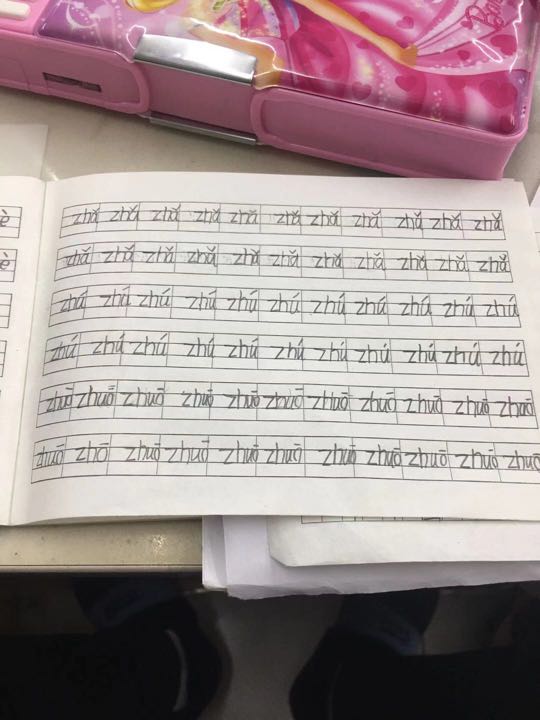 Barbie
è zhǎ zhǎ zhǎ zhǎ zhǎ zhǎ zhǎ zhǎ zhǎ zhǎ zhǎ
è zhǎ zhǎ zhǎ zhǎ zhǎ zhǎ zhǎ zhǎ zhǎ zhǎ zhǎ
zhú zhú zhú zhú zhú zhú zhú zhú zhú zhú zhú
zhú zhú zhú zhú zhú zhú zhú zhú zhú zhú zhú
zhuō zhuō zhuō zhuō zhuō zhuō zhuō zhuō zhuō zhuō zhuō
zhuō zhō zhuō zhuō zhuō zhuō zhuō zhuō zhuō zhuō zhuō